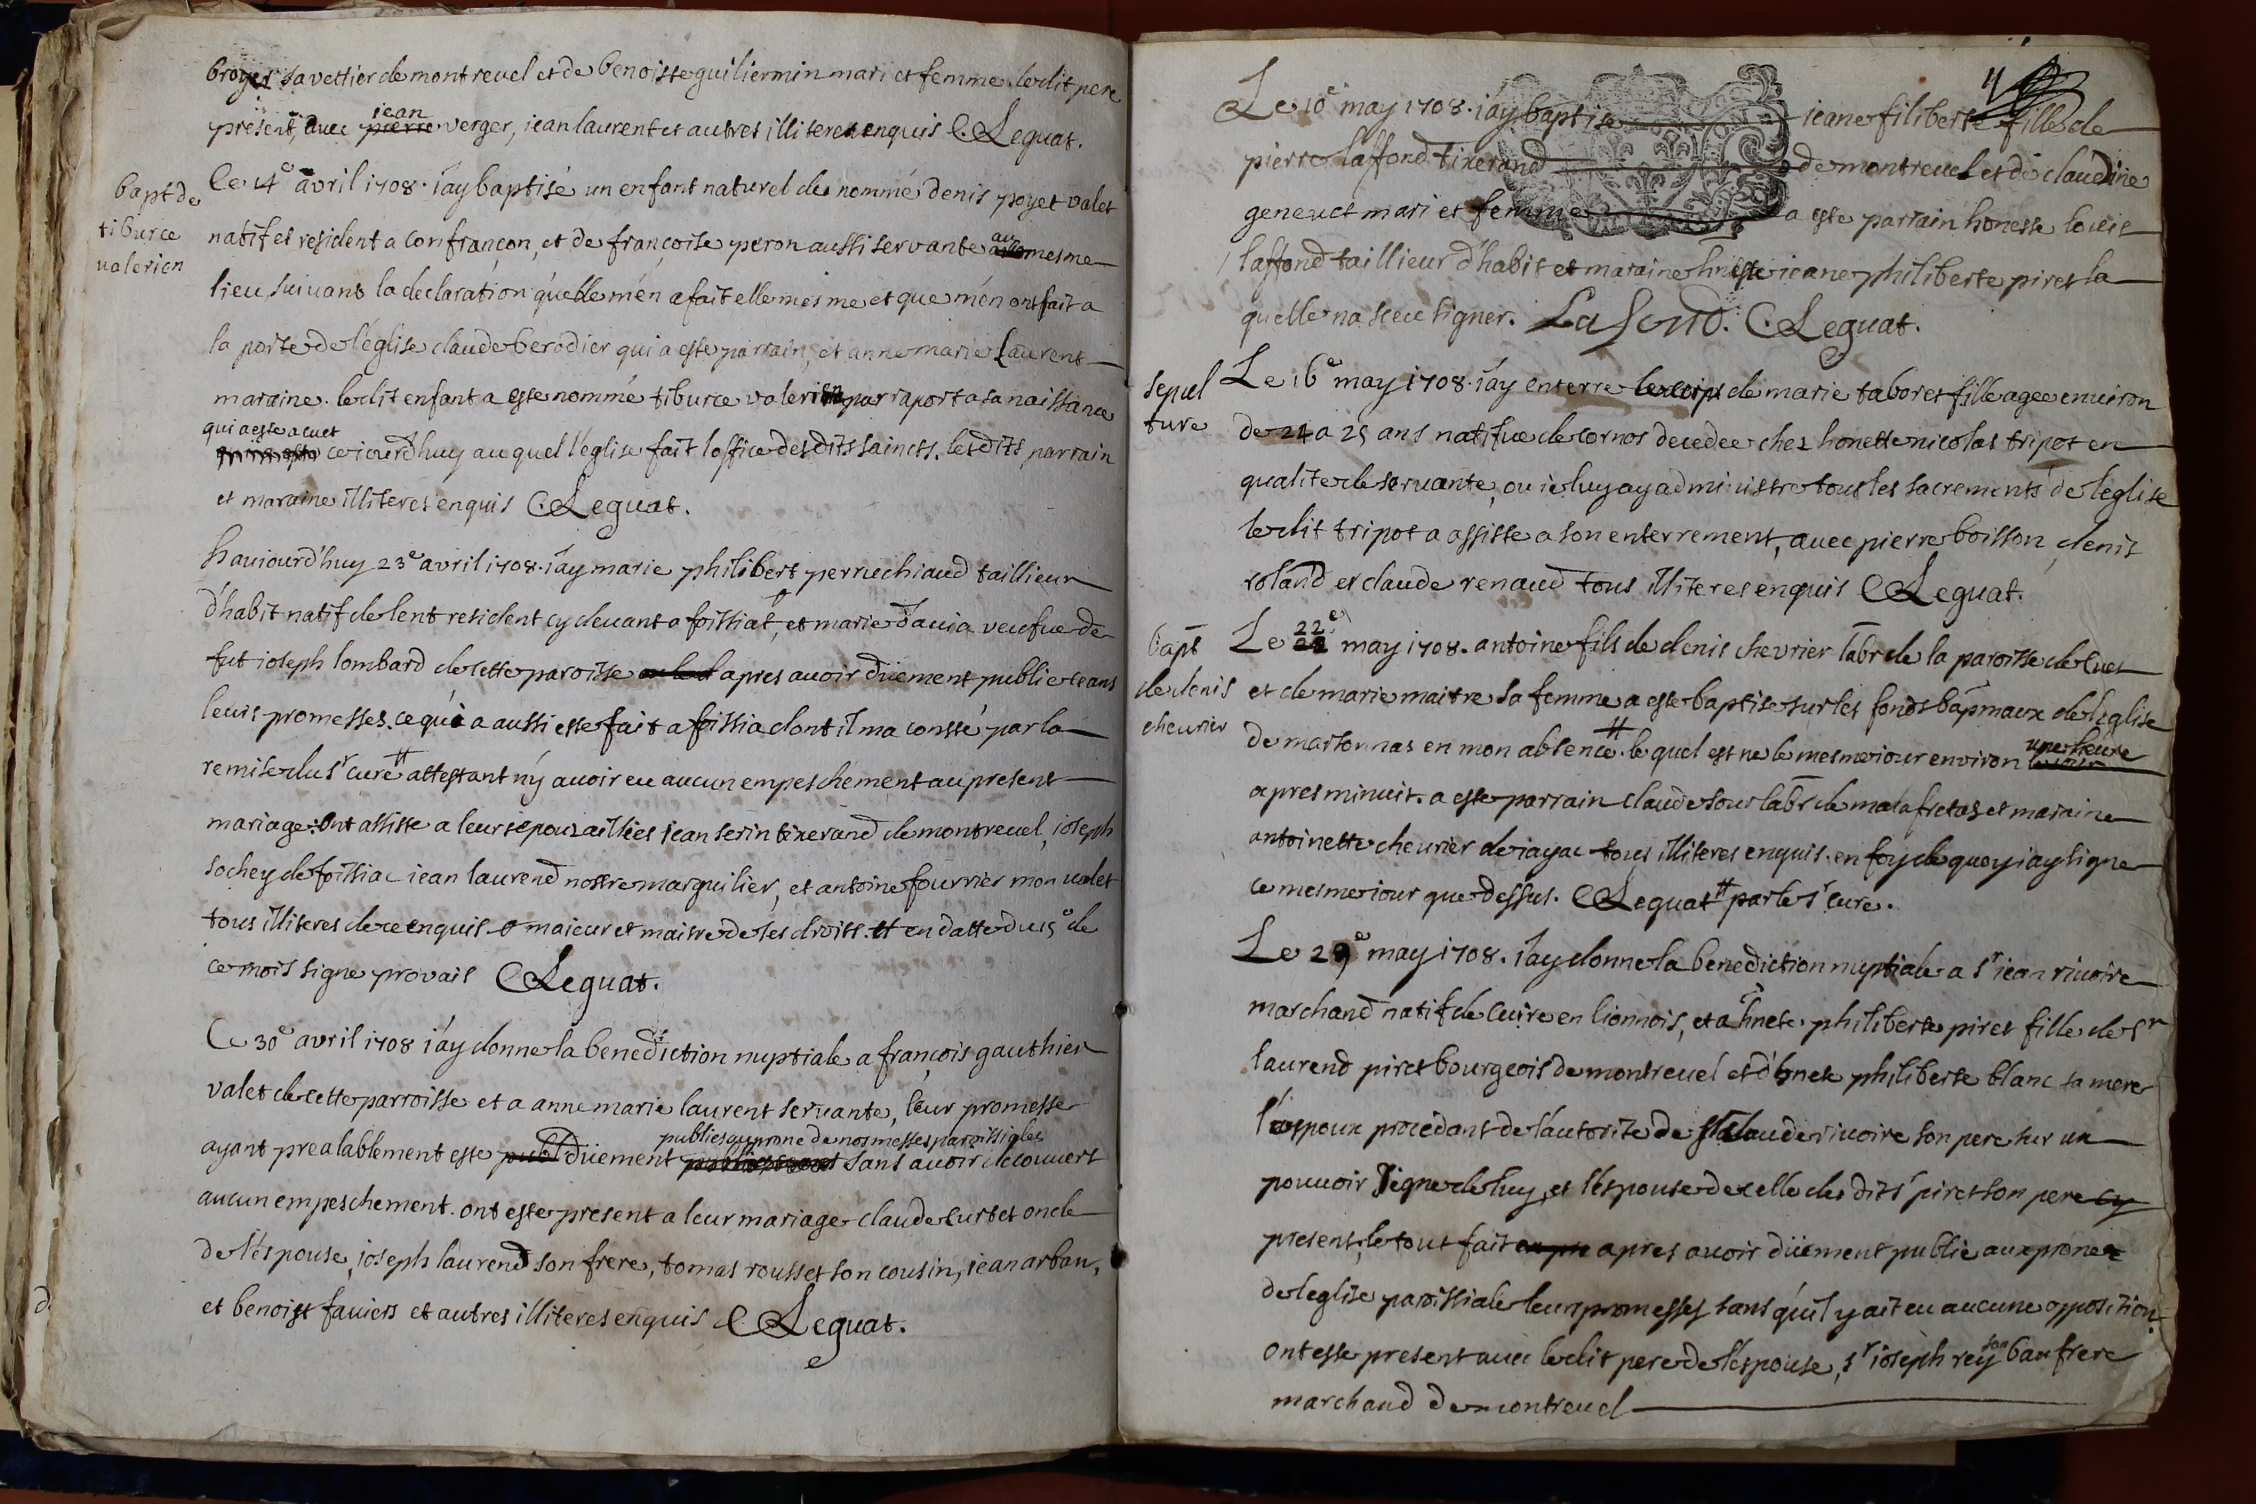 broyer savettier de montrevel et de benoiste guiliermin mari et femme. ledit pere
present, avec pierre jean verger, jean laurent et autres illiteres enquis C. Leguat.
bapt de
tiburce
valerien
Ce 14e avril 1708. j'ay baptisé un enfant naturel du nommé denis poyet valet
natif et resident a confrançon, et de françoise peron aussi servante au mesme
lieu, suivant la declaration qu'elle m'en a fait elle mesme et que m'en ont fait a
la porte de l'église claude berodier qui a este parrain, et anne marie Laurent
maraine. ledit enfant a este nommé tiburce valerien par raport a sa naissance
qui a este a cuet
ce jourd'huy auquel l'eglise fait l'office desdits saincts. lesdits parrain
et maraine illiteres enquis C. Leguat.
haujourd'huy 23e avril 1708. j'ay marie philibert perruchiaud taillieur
d'habit natif de lent resident cy devant a foissiat, et marie d'avia veufue de
fut joseph lombard de cette paroisse apres avoir düement publie ceans
leurs promesses. ce qui a aussi este fait a foissia dont il ma consté par la
remise du sr curé # attestant n'y avoir eu aucun empeschement au present
mariage: ont assisté a leurs epouzaillies jean serin tixerand de montrevel, joseph
sochey de foissiac jean laurend nostre marguilier, et antoine fourrier mon valet
tous illiteres de ce enquis majeur et maitre de ses droits. # en datte du 15e de
ce mois signe provail C. Leguat.
Ce 30e avril 1708 j'ay donne la benediction nuptiale a françois gauthier
valet de cette parroisse et a anne marie laurent servante, leur promesse
publies au prone de nos messes paroissiales
ayant prealablement este publ düement sans avoir decouvert
aucun empeschement. ont este present a leur mariage claude curtet oncle
de l'espouse, joseph laurend son frere, tomas rousset son cousin, jean arbau,
et benoist faviers et autres illiteres enquis C. Leguat.
4
Le 10e may 1708. j'ay baptise jeane filiberte fille de
pierre laffond tixerand de montrevel et de claudine
genevet mari et femme a este parrain honeste louis
laffond taillieur d'habit et maraine hneste jeane philiberte piret la
quelle na sceu signer. Lafond. C. Leguat.
sepul
ture
Le 16e may 1708. j'ay enterre le corps de marie taboret fille agee environ
de 24 a 25 ans natifue de cornos decedee chez honette nicolas tripot en
qualite de servante, ou je luy ay administre tous les sacrements de l'eglise
ledit tripot a assisté a son enterrement, avec pierre boisson, denis
roland et claude renaud tous illiteres enquis C. Leguat.
bapt
de denis
chevrier
Le 22e may 1708. antoine fils de denis chevrier labr de la paroisse de cuet
et de marie maitre sa femme a este baptise sur les fonds bapmaux de l'eglise
de marsonnas en mon absence #. le quel est ne le mesme jour environ une heure
apres minuit. a este parrain claude sour labr de malafretaz et maraine
antoinette chevrier de jayac tous illiteres enquis. en foy de quoy j'ay signe
ce mesme jour que dessus. C. Leguat # par le sr cure.
Le 29e may 1708. j'ay donne la benediction nuptiale a sr jean rivoire
marchand natif de cuire en lionnois, et a hnete philiberte piret fille de sr
laurend piret bourgeois de montrevel et d'hnete philiberte blanc sa mere
l'espoux procedant de l'autorite de claude rivoire son pere sur un
pouvoir signe de luy, et l'espouse de celle du dit sr piret son pere cy
present, le tout fait apres avoir düement publie aux prones
de leglise paroissiale leurs promesses sans qu'il y ait eu aucune opposition.
ont este present avec ledit pere de l'espouse, sr joseph rey son beau frere
marchand de montrevel